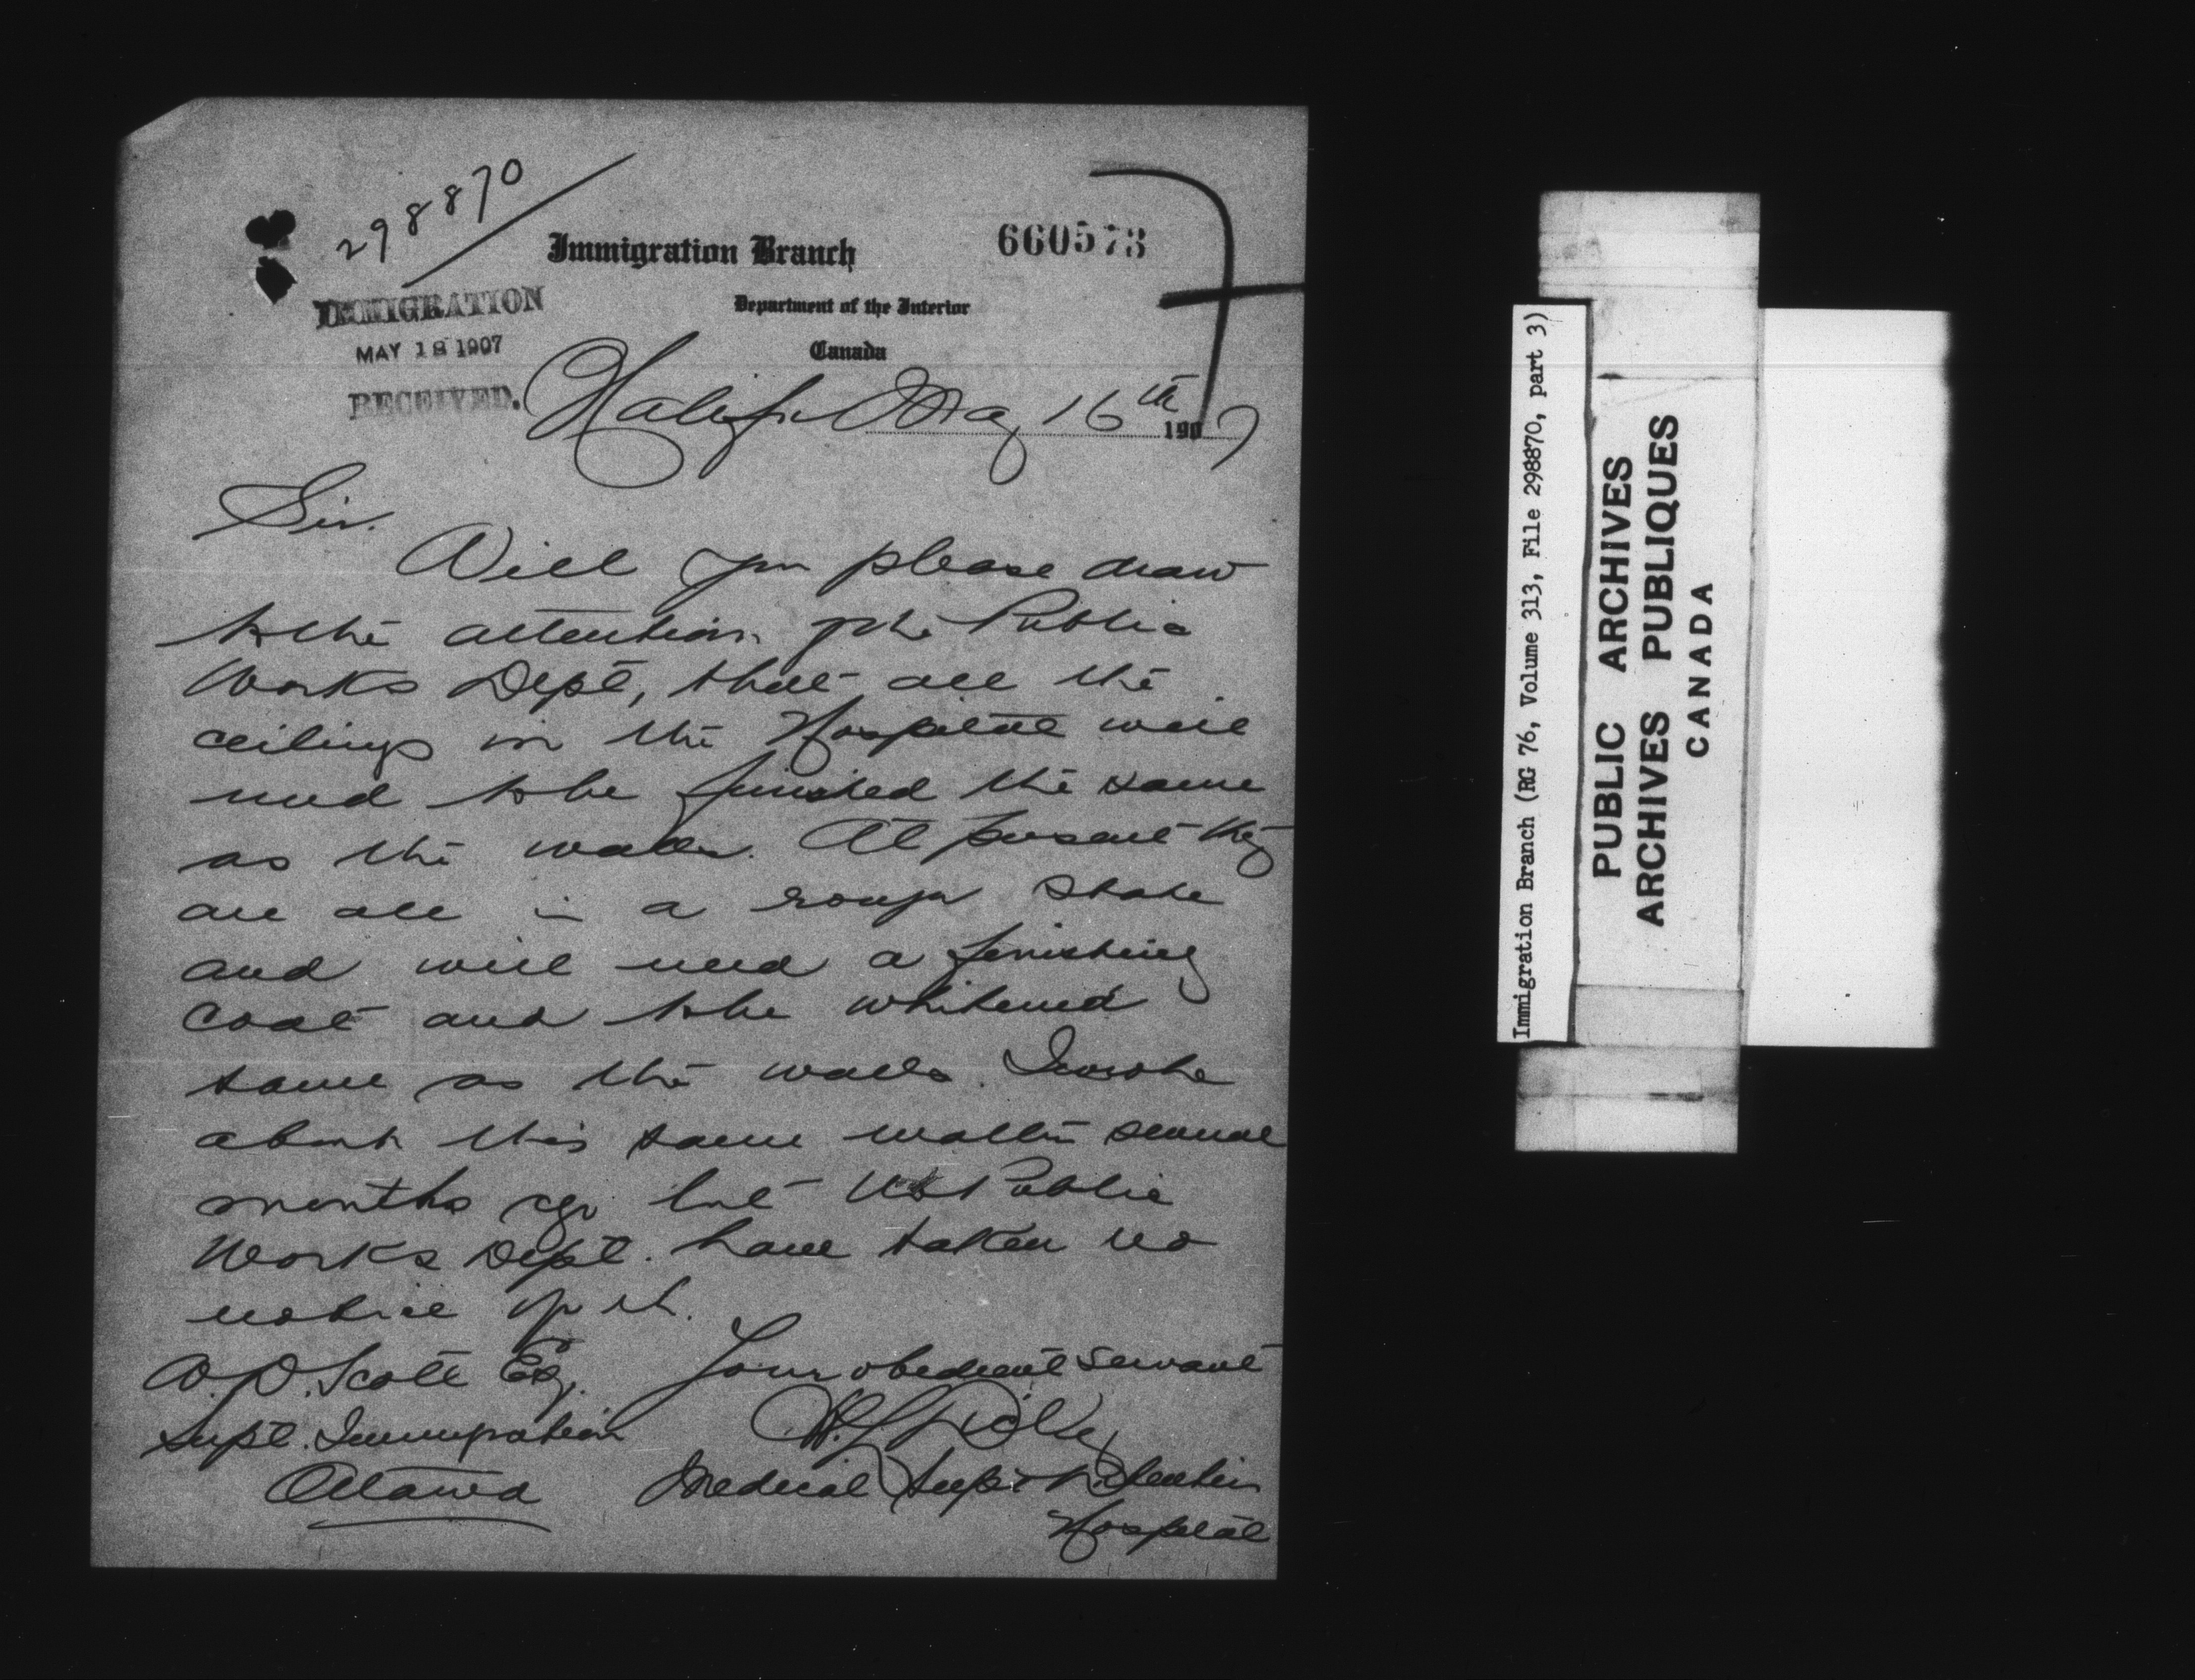 298870
Immigration Branch
660573
Department of the Interior
Canada
IMMIGRATION
MAY 18 1907
RECEIVED.
Halifax May 16th 1907
Sir.
Will you please draw
to the attention of the Public
Works Dept, that all the
ceilings in the Hospital will
need to be finished the same
as the walls. At present they
are all in a rough state
and will need a finishing
coat and to be whitened
same as the walls. I wrote
about this same matter several
months ago but the Public
Works Dept. have taken no
notice of it.
Your obedient servant
W. D. Scott Esq.
Supt. Immigration
Ottawa
Medical Supt Detention
Hospital
Immigration Branch (RG 76, Volume 313, File 298870, part 3)
PUBLIC ARCHIVES
ARCHIVES PUBLIQUES
CANADA